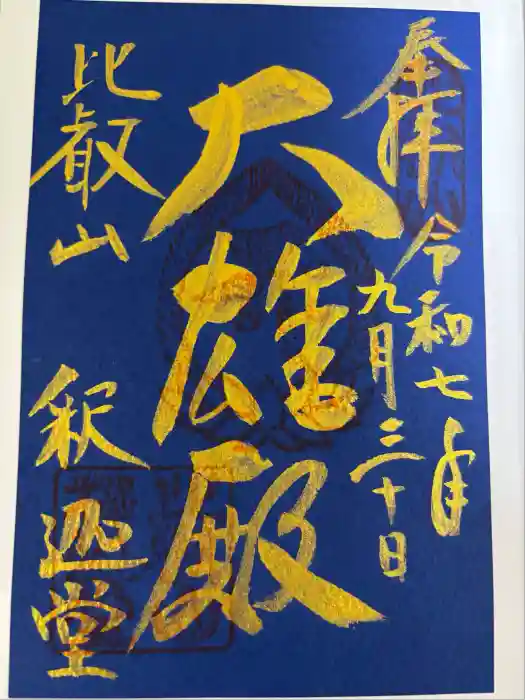 奉拝
令和七年
九月三十日
大雄殿
比叡山
釈迦堂